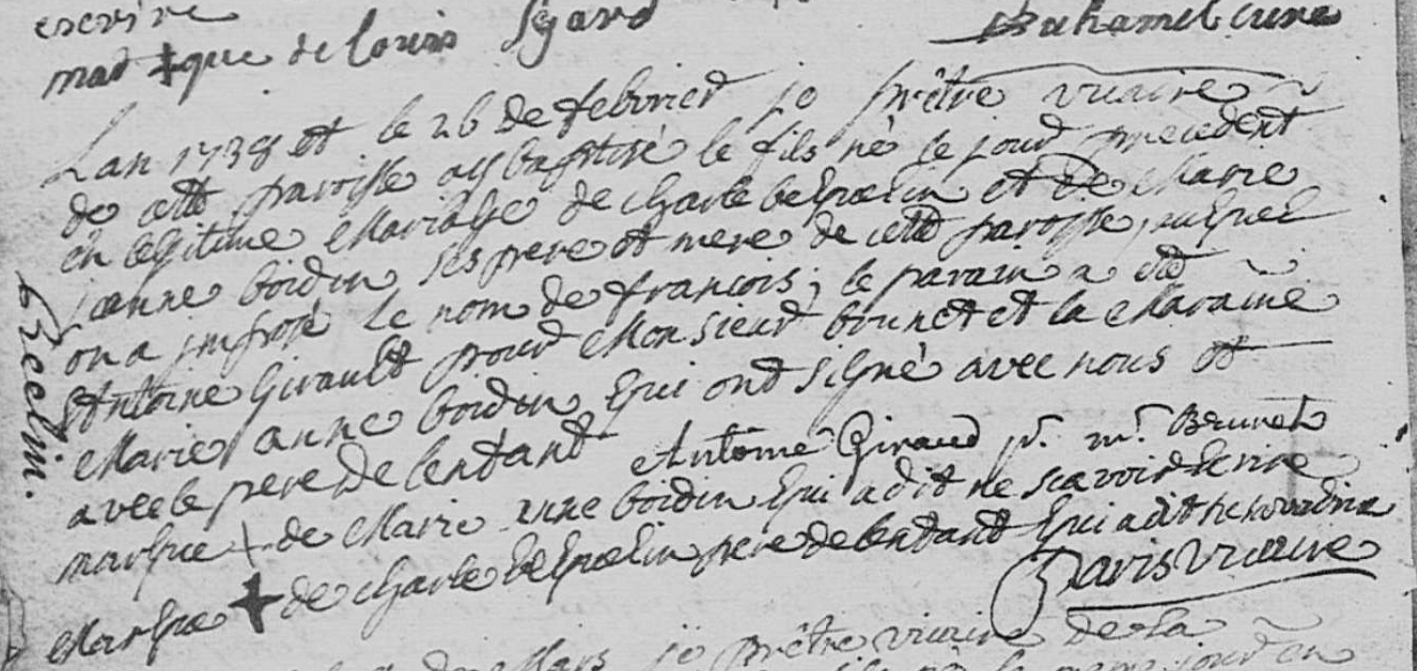 escrire
mar✝que de louis Sgard Duhamel cure
Lan 1738 et le 26 de febvrier je prêtre vicaire
de cette paroisse ay baptisé le fils né le jour precedent
en legitime Mariage de charle bequelin et de Marie
jeanne boidin ses pere et mere de cette paroisse, auquel
on a imposé le nom de francois; le parain a eté
Antoine Girault pour Monsieur brunet et la Maraine
Marie anne boidin qui ont signé avec nous et
avec le pere de lenfant Antoine Giraud pr. mr. Brunet
marque + de Marie anne boidin qui a dit ne scavoir écrire
Marque ✝ de charle bequelin pere de lenfant qui a dit ne
Paris Vicaire
de Mars je prêtre vicaire de la
le meme jour en